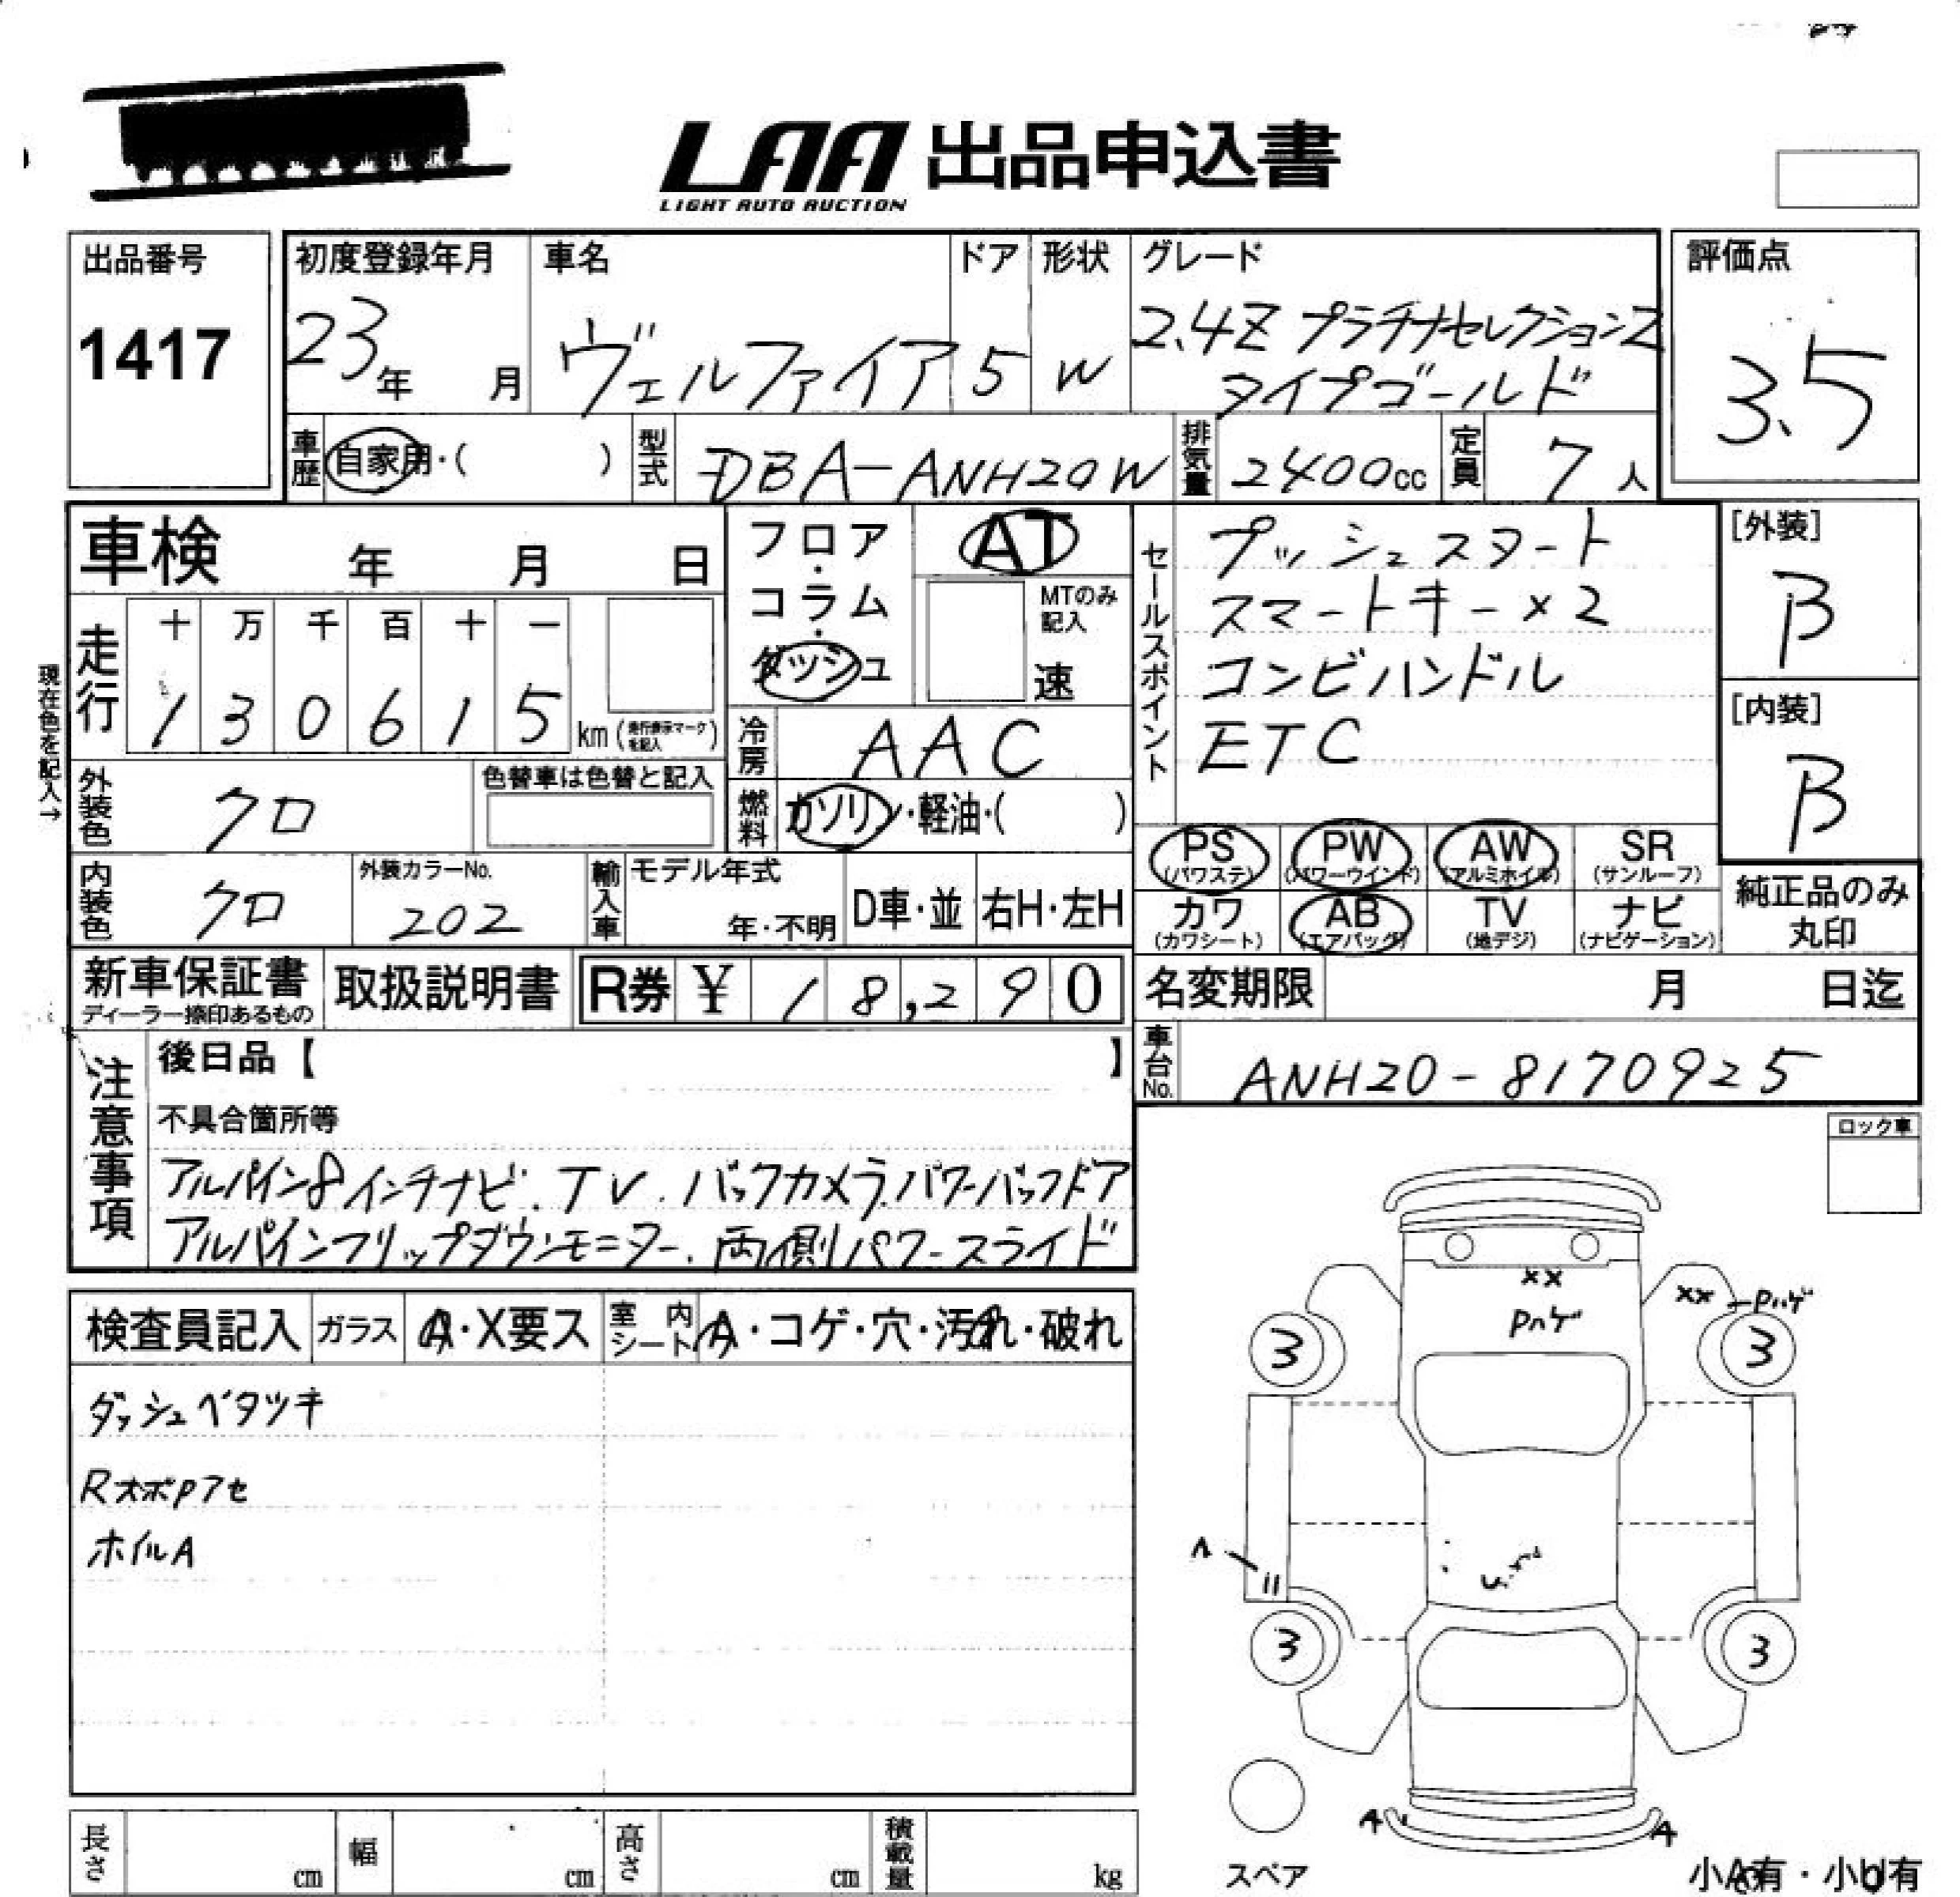 LAA 出品申込書
LIGHT AUTO AUCTION
出品番号
1417
初度登録年月
23年 月
車名
ヴェルファイア
ドア
5
形状
W
グレード
2.4Z プラチナセレクションZ
タイプゴールド
評価点
3.5
車歴 自家用・( )
型式 DBA-ANH20W
排気量 2400cc
定員 7人
車検 年 月 日
走行 十 万 千 百 十 一
1 3 0 6 1 5 km(走行表示マークを記入)
現在色を記入→
外装色 クロ
色替車は色替と記入
内装色 クロ
外装カラーNo.
202
輸入車
モデル年式
年・不明
D車・並
右H・左H
フロア・
コラム・
ダッシュ
AT
MTのみ
記入
速
冷房 AAC
燃料 ガソリン・軽油・( )
セールスポイント
プッシュスタート
スマートキー×2
コンビハンドル
ETC
[外装]
B
[内装]
B
PS
(パワステ)
PW
(パワーウインド)
AW
(アルミホイル)
SR
(サンルーフ)
カワ
(カワシート)
AB
(エアバッグ)
TV
(地デジ)
ナビ
(ナビゲーション)
純正品のみ
丸印
新車保証書
ディーラー捺印あるもの
取扱説明書
R券 ¥ 18,290
名変期限 月 日迄
車台No. ANH20-8170925
注意事項
後日品【 】
不具合箇所等
アルパイン8インチナビ.TV.バックカメラ.パワーバックドア
アルパインフリップダウンモニター.両側パワースライド
ロック車
検査員記入
ガラス
A・X要ス
室内シート
A・コゲ・穴・汚れ・破れ
ダッシュベタツキ
RオボPアセ
ホイルA
XX
Pハゲ
XX -Pハゲ
3
3
A
3
3
A
A
スペア
小A有・小U有
長さ cm
幅 cm
高さ cm
積載量 kg